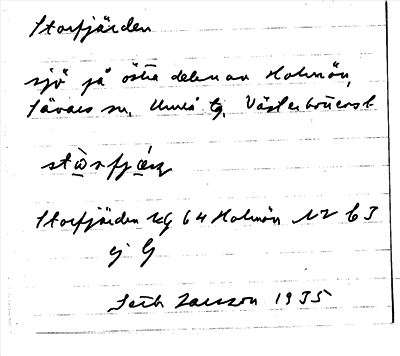 Storfjärden
sjö på östra delen av Holmön,
Sävars sn, Umeå tg, Västerbotten
Storfjärden kg 64 Holmön NV 63
ej G
Seth Larsson 1935